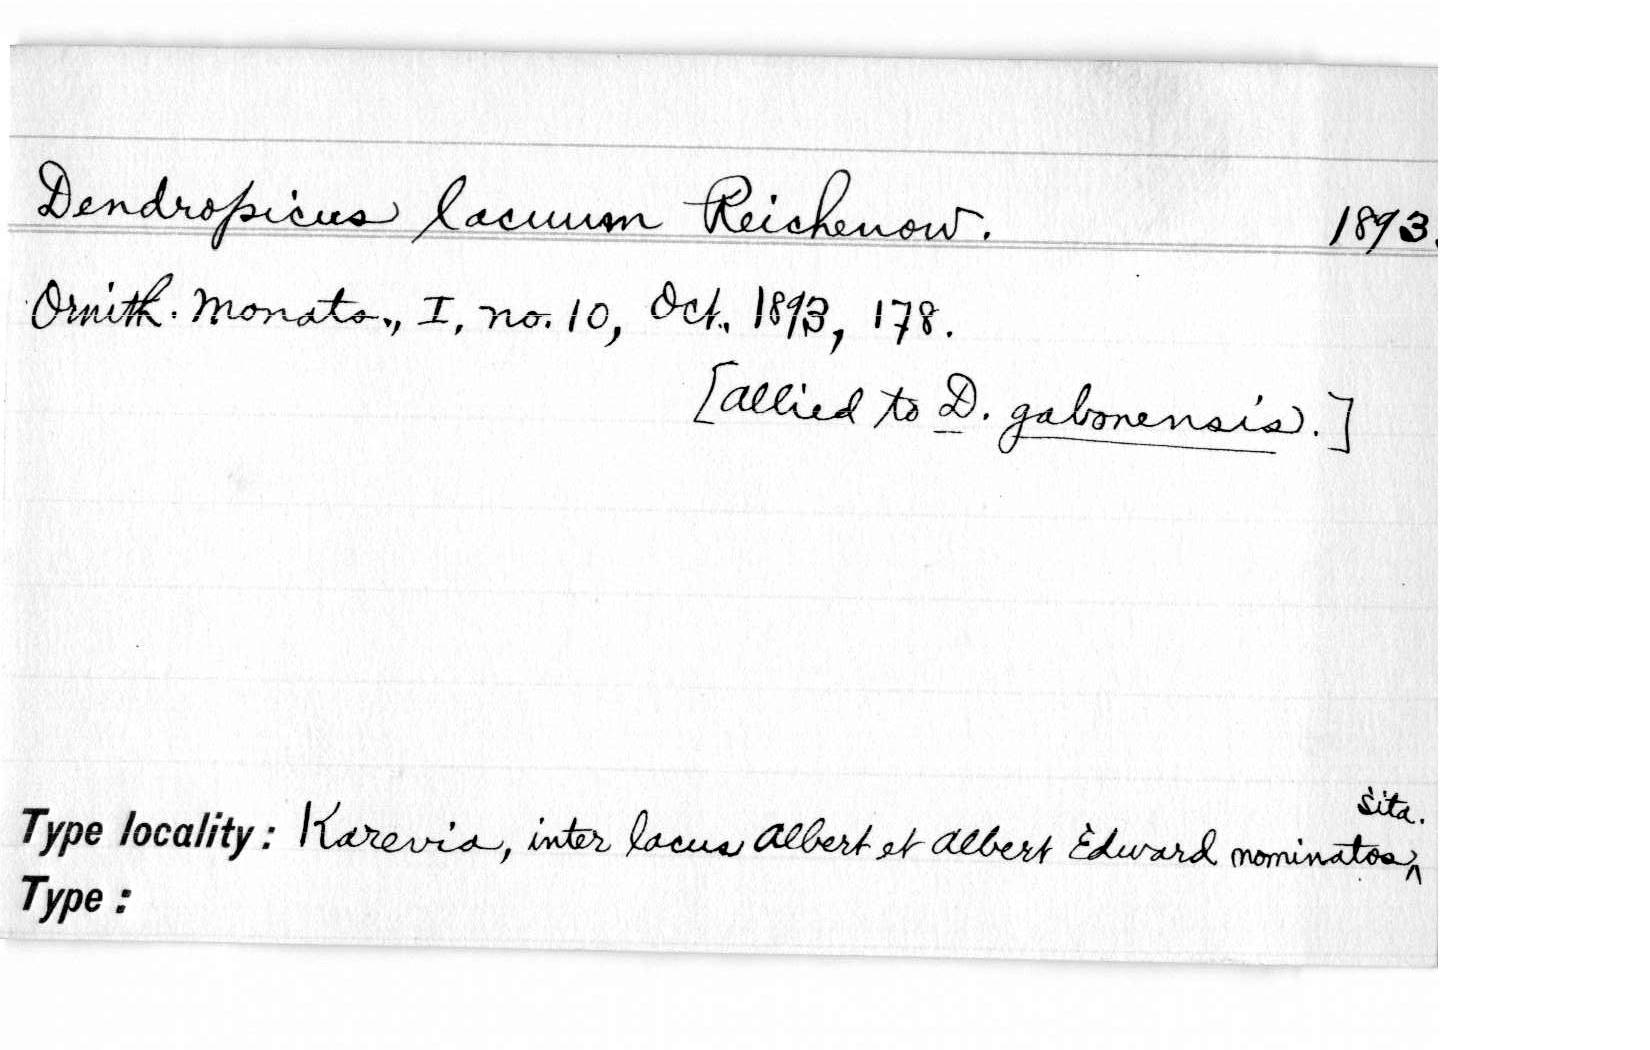 Dendropicus lacuum Reichenow. 1893.
Ornith. Monats., I, no. 10, Oct. 1893, 178.
[allied to D. gabonensis.]
Type locality: Karevia, inter lacus Albert et Albert Edward nominatos, sita.
Type: